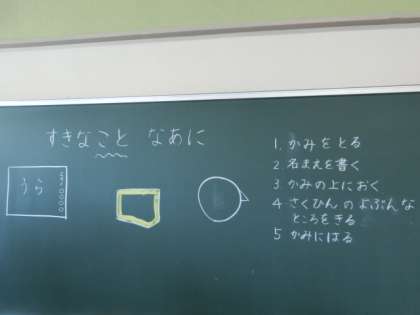 すきなこと なあに
うら
1. かみをとる
2. 名まえを書く
3. かみの上におく
4 さくひんのよぶんな
ところをきる
5 かみにはる